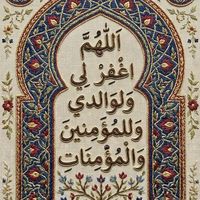 اَللّٰهُمَّ
اغْفِرْ لِي
وَلِوَالِدَي
وَلِلْمُؤْمِنِينَ
وَالْمُؤْمِنَاتِ